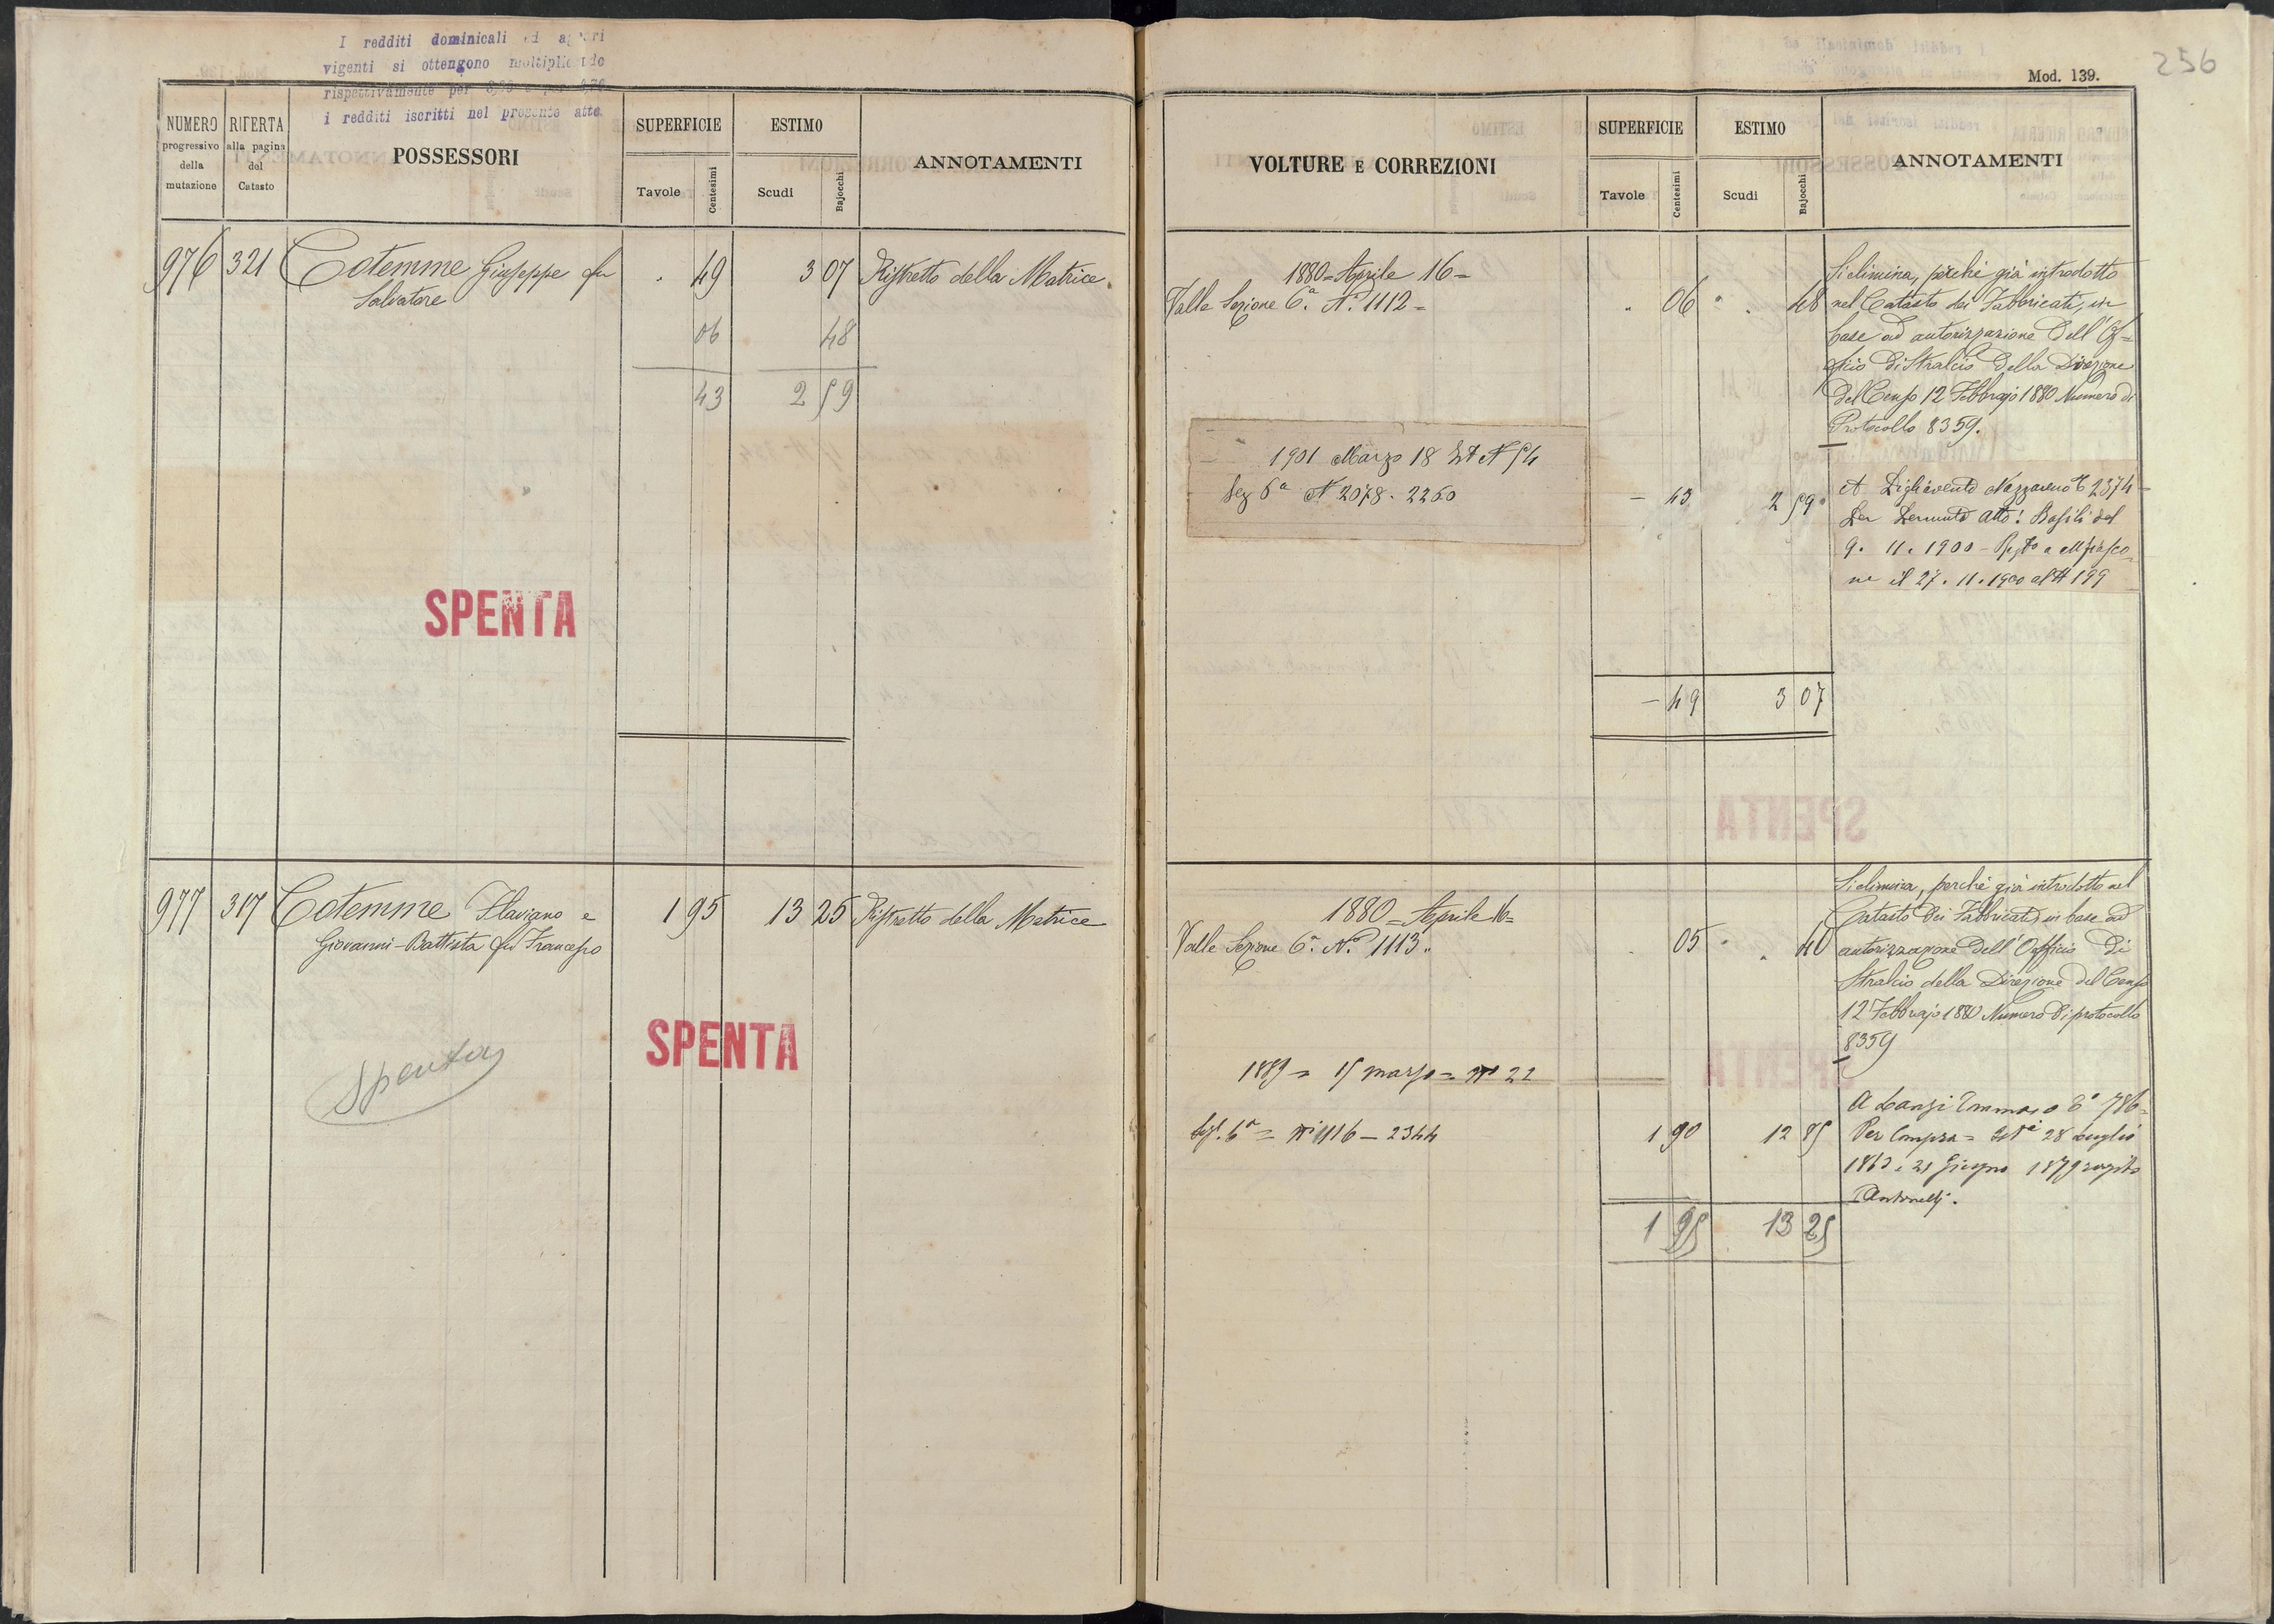 I redditi dominicali ed agrari
vigenti si ottengono moltiplicando
rispettivamente per
i redditi iscritti nel presente atto.
NUMERO progressivo della mutazione
RIFERTA alla pagina del Catasto
POSSESSORI
SUPERFICIE
Tavole
Centesimi
ESTIMO
Scudi
Bajocchi
ANNOTAMENTI
976 321 Cotemme Giuseppe fu . 49 3 07 Ristretto della Matrice.
Salvatore
06 48
43 2 59
SPENTA
977 317 Cotemme Flaviano e 1 95 13 25 Ristretto della Matrice
Giovanni-Battista fu Francesco
SPENTA
Spenta
256
Mod. 139.
VOLTURE E CORREZIONI
SUPERFICIE
Tavole
Centesimi
ESTIMO
Scudi
Bajocchi
ANNOTAMENTI
1880 = Aprile 16 =
Valle Sezione 6.ª N.º 1112 = . 06 . 48
Si elimina, perchè già introdotto
nel Catasto dei Fabbricati, in
base ad autorizzazione dell' Of=
ficio di Stralcio della Direzione
del Censo 12 Febbrajo 1880 Numero di
Protocollo 8359.
1901 Marzo 18 N 54
Sez 6ª N 2078. 2260 - 43 2 59
A Nazzareno 2374
Per Permuta Atto: Basili del
9. 11. 1900 -
ne il 27. 11. 1900 al N 199
- 49 3 07
1880 = Aprile 16 =
Valle Sezione 6.ª N.º 1113. . 05 . 40
Si elimina, perchè già introdotto nel
Catasto dei Fabbricati in base ad
autorizzazione dell' Officio di
Stralcio della Direzione del Censo
12 Febbrajo 1880 Numero di protocollo
8359
1889 = 15 marzo = Nº 22
Sez. 6ª = Ni 1116 - 2344 1 90 12 85
A Lanzi Tommaso 786 =
Per Compra = 28 Luglio
21 Giugno 1879 rogito
Antonelli.
1 95 13 25